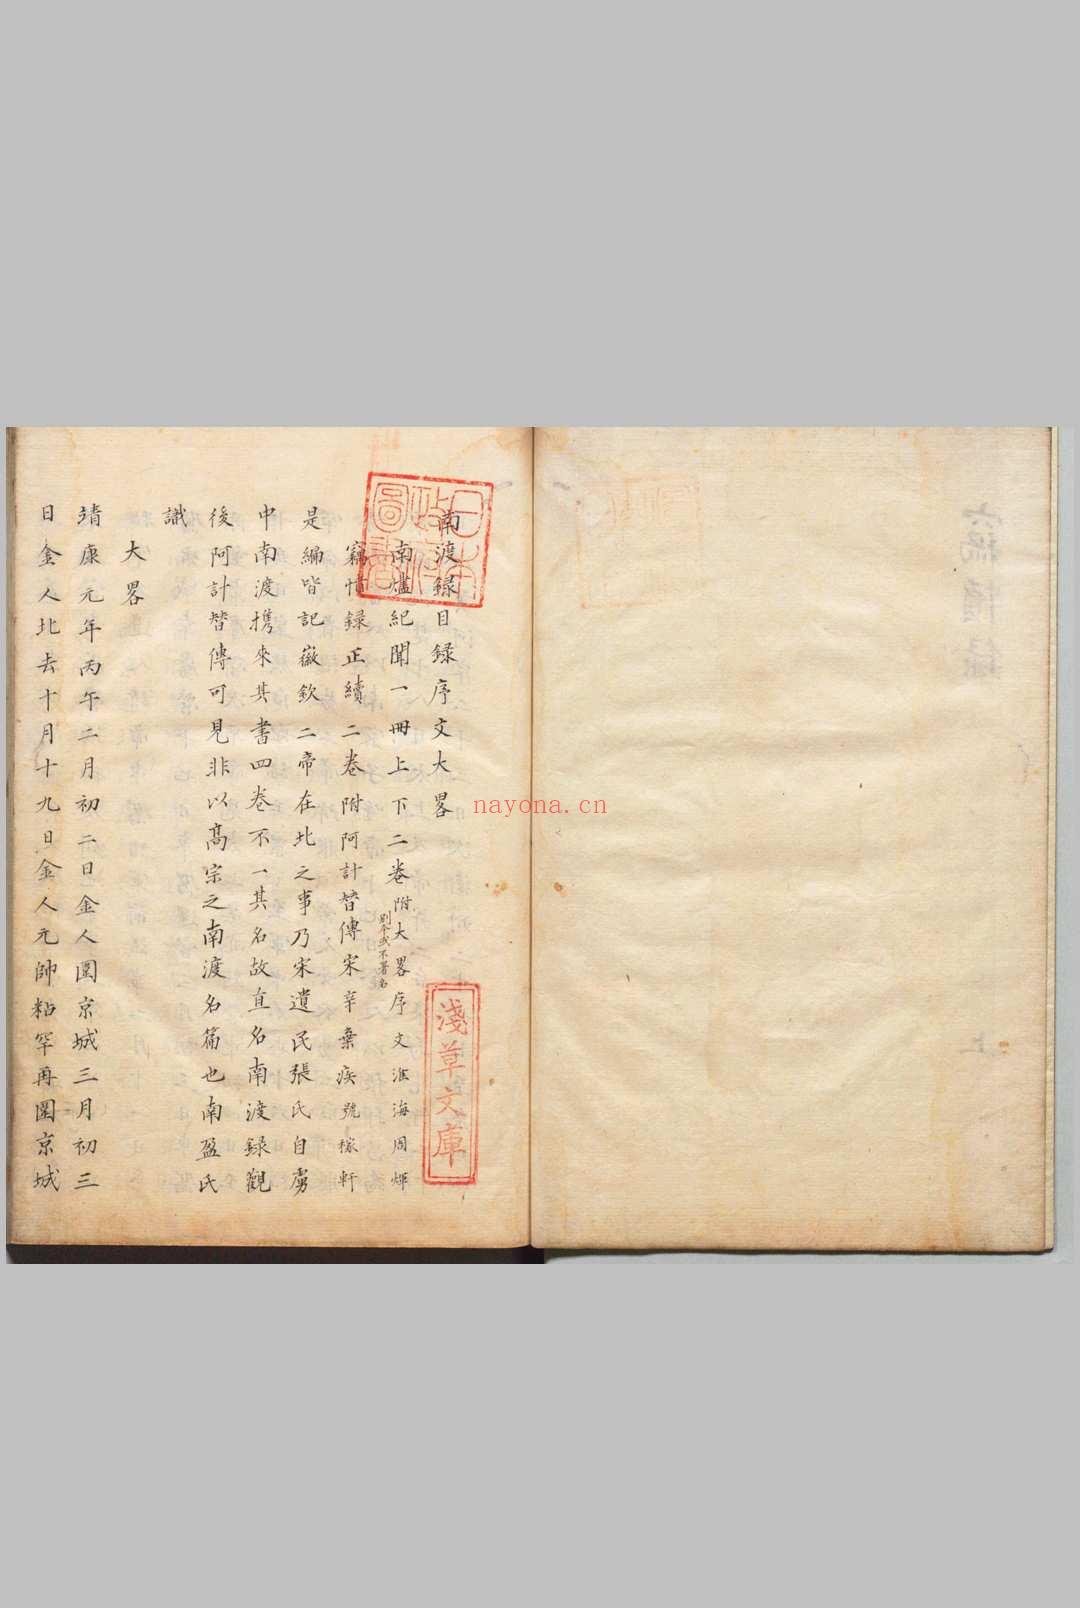 南渡録目録序文大畧
南燼紀聞一冊上下二卷附大畧序文淮海周煇
別本或不署名
竊憤録正續二卷附阿計替傳宋辛棄疾號稼軒
是編皆記徽欽二帝在北之事乃宋遺民張氏自虜
中南渡携來其書四卷不一其名故直名南渡録觀
後阿計替傳可見非以髙宗之南渡名篇也南盈氏
識
大畧
靖康元年丙午二月初二日金人圍京城三月初三
日金人北去十月十九日金人元帥粘罕再圍京城
日本政府圖書
淺草文庫
nayona.cn